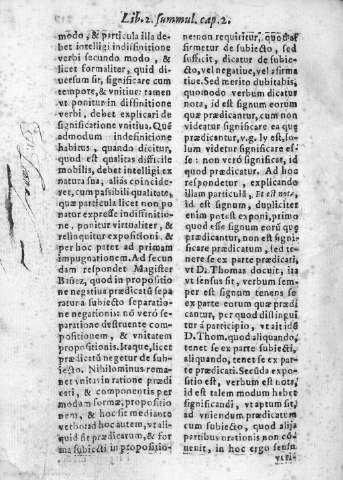 Lib. 2. summul. cap. 2.
modo, & particula illa de-
bet intelligi indiffinitione
verbi secundo modo, &
licet formaliter, quid di-
uersum sit, significare cum
tempore, & vnitiue: tamen
vt ponitur in diffinitione
verbi, debet explicari de
significatione vnitiua. Quē
admodum indefinitione
habitus, quando dicitur,
quod est qualitas difficile
mobilis, debet intelligi ex
natura sua, alias coincide-
ret, cum passibili qualitate,
quæ particula licet non po
natur expresse indiffinitio-
ne, ponitur virtualiter, &
relinquitur expositioni. &
per hoc patet ad primam
impugnationem. Ad secun
dam respondet Magister
Bañez, quod in propositio
ne negatiua prædicatū sepa
ratur a subiecto separatio
ne negationis: nō vero se-
paratione destruente com
positionem, & vnitatem
propositionis. Itaque, licet
prædicatū negetur de sub-
iecto. Nihilominus rema-
net vnita in ratione prædi
cati, & componentis per
modam formæ, propositio
nem, & hoc sit mediante
verbo ad hoc autem, vt ali-
quid sit prædicatum, & for
ma subiecti in propositio-
ne: non requiritur, quod af
firmetur de subiecto, sed
sufficit, dicatur de subie-
cto, vel negatiue, vel affirma
tiue. Sed merito dubitabis,
quomodo verbum dicatur
nota, id est signum eorum
quæ prædicantur, cum non
videatur significare ea quæ
prædicantur, v. g. ly est, so-
lum videtur significare es-
se: non verò significat, id
quod prædicatur. Ad hoc
respondetur, explicando
illam particulā, Et est nota,
id est signum, dupliciter
enim potest exponi, primo
quod esse signum eorū quæ
prædicantur, non est signi-
ficare prædicatum, sed te-
nere se ex parte prædicati,
vt D. Thomas docuit, ita
vt sensus sit, verbum sem-
per est signum tenens se
ex parte eorum quæ prædi
cantur, per quod distingui
tur á participio, vt ait idē
D. Thom. quod aliquando,
tenet se ex parte subiecti,
aliquando, tenet se ex par-
te prædicati. Secūda expo-
sitio est, verbum est nota,
id est talem modum habet
significandi, vt aptum sit,
ad vniendum prædicatum
cum subiecto, quod alijs
partibus orationis non cō-
uenit, in hoc ergo sensu